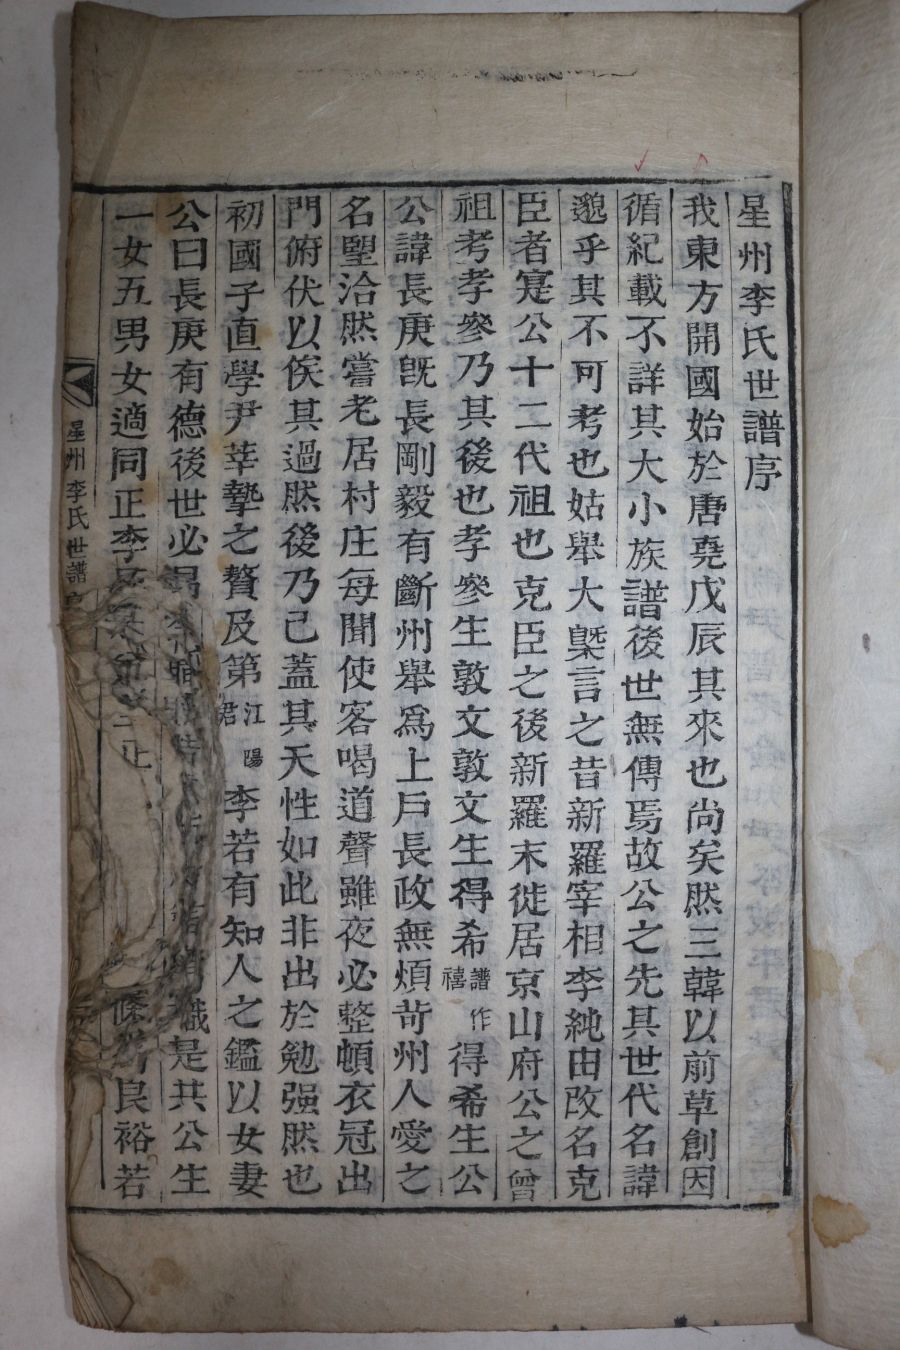 星州李氏世譜序
我東方開國始於唐堯戊辰其來也尚矣然三韓以前草創因
循紀載不詳其大小族譜後世無傳焉故公之先其世代名諱
邈乎其不可考也姑舉大槩言之昔新羅宰相李純由改名克
臣者寔公十二代祖也克臣之後新羅末徙居京山府公之曾
祖考孝參乃其後也孝參生敦文敦文生得希譜作禧得希生公
公諱長庚旣長剛毅有斷州舉爲上戶長政無煩苛州人愛之
名聖洽然嘗老居村庄每聞使客喝道聲雖夜必整頓衣冠出
門俯伏以俟其過然後乃已蓋其天性如此非出於勉强然也
初國子直學尹莘摯之贅及第江陽君李若有知人之鑑以女妻
公曰長庚有德後世必 是共公生
一女五男女適同正李 良裕若
星州李氏世譜序